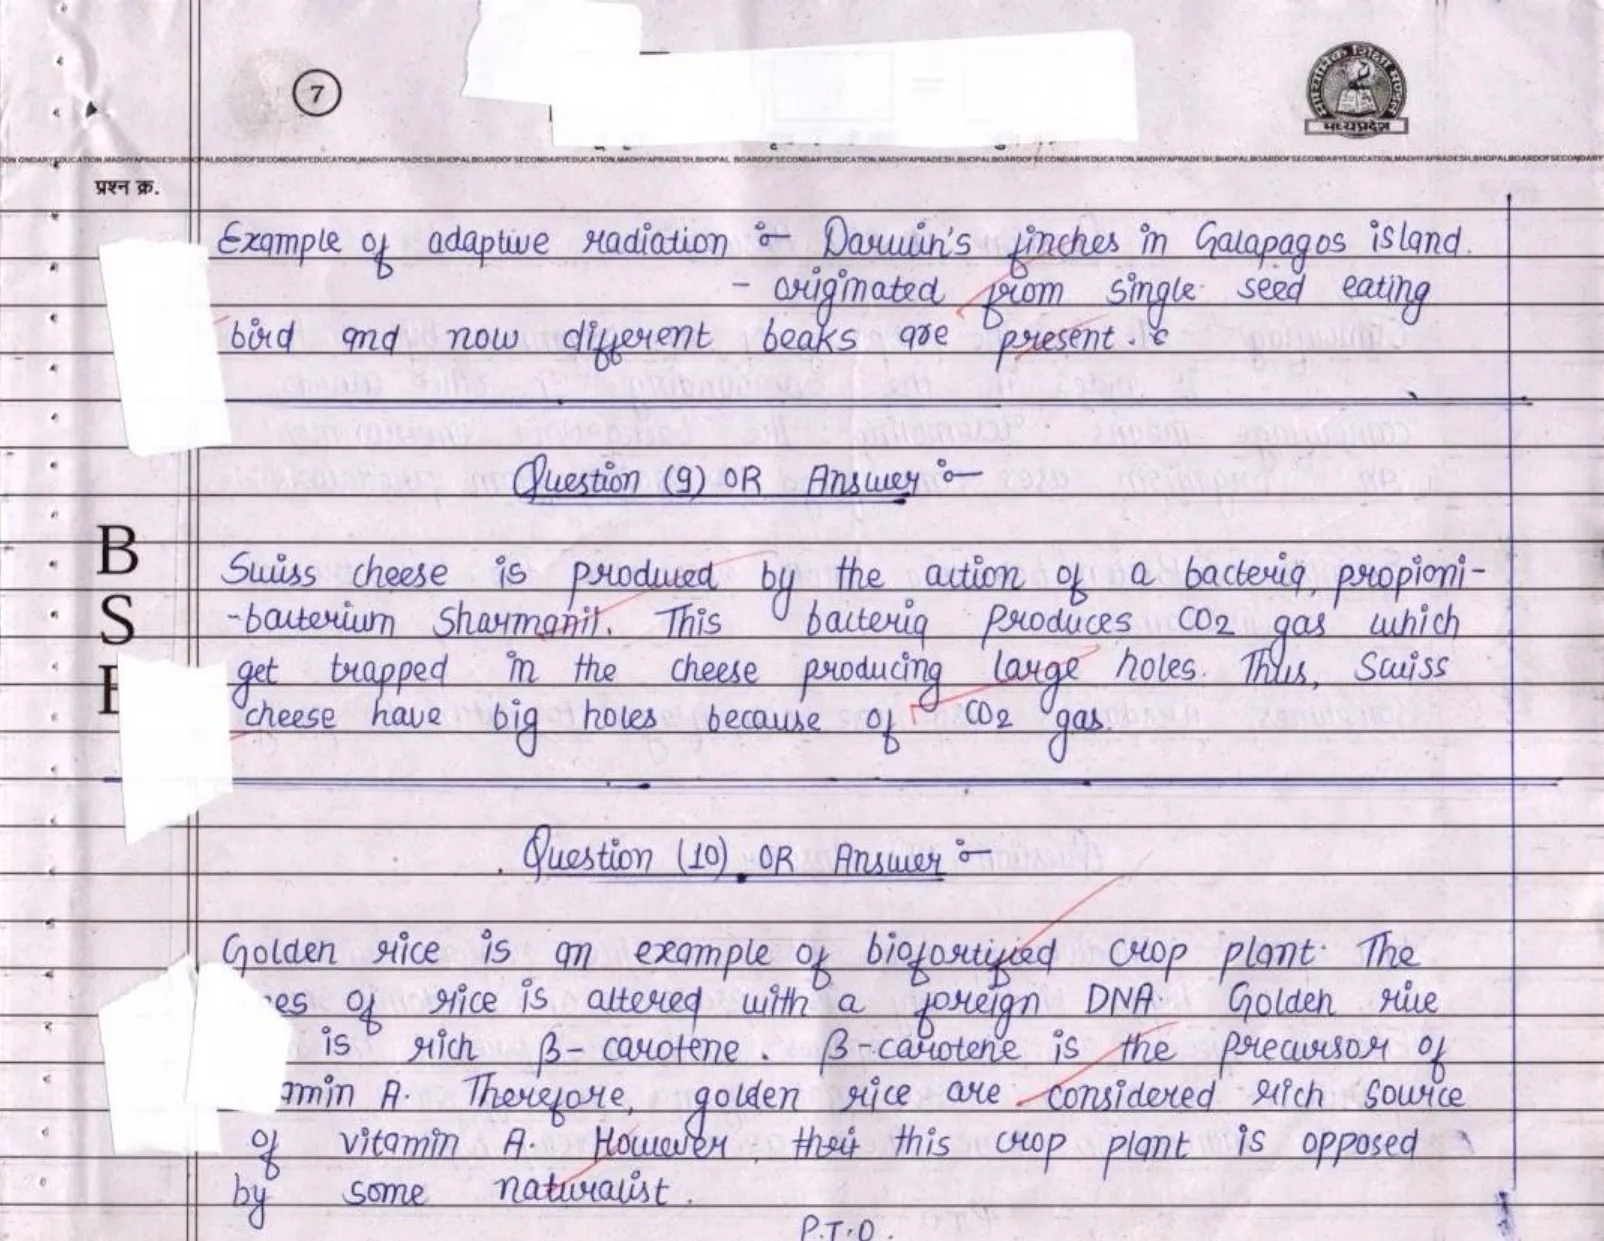 7
मध्यप्रदेश
BOARD OF SECONDARY EDUCATION, MADHYA PRADESH, BHOPAL
प्रश्न क्र.
Example of adaptive radiation :- Darwin's finches in Galapagos island.
- originated from single seed eating
bird and now different beaks are present.
Question (9) OR Answer :-
B
S
Swiss cheese is produced by the action of a bacteria, propioni-
-bacterium Sharmanii. This bacteria produces CO2 gas which
get trapped in the cheese producing large holes. Thus, Swiss
cheese have big holes because of CO2 gas.
Question (10) OR Answer :-
Golden rice is an example of biofortified crop plant. The
of rice is altered with a foreign DNA. Golden rice
is rich β-carotene. β-carotene is the precursor of
A. Therefore, golden rice are considered rich source
of vitamin A. However, this crop plant is opposed
by some naturalist.
P.T.O.